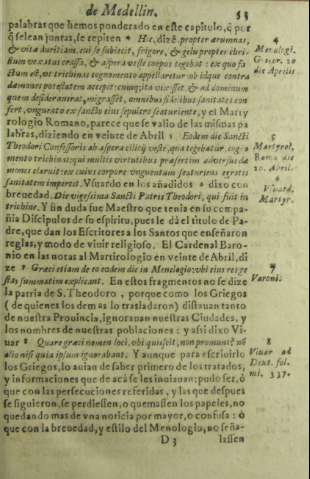 de Medellin. 53
palabras que hemos ponderado en este capitulo, q̃ por
q̃ se lean juntas, se repiten * Hic, dizẽ, propter ærumnas,
& vitæ duritiam, cui se subiecit, frigore, & gelu propter
ctum est, ut trichinas cognomento appellaretur ob idque contra
dæmones potestatem accepit:
fert, unguento ex sancto eius sepulcro scaturiente, y el Marty
rologio Romano, parece que se valio de las mismas pa
labras, diziendo en veinte de Abril 5 Eodem die Sancti
Theodori Confessoris ab aspera cilicij veste, qua tegebatur, cog-
mento trichinas; qui multis virtutibus præsertim aduersus dæ
mones claruit: ex cuius corpore vnguentum scaturiens ægris
sanitatem impertit. Vsuardo en los añadidos 6 dixo con
breuedad. Die vigesima Sancti Patris Theodori, qui fuit in
trichine. Y sin duda fue Maestro que tenia en su compa
ñia Discipulos de su espiritu, pues le dà el titulo de Pa-
dre, que dan los Escritores a los Santos que enseñaron
reglas, y modo de viuir religioso. El Cardenal Baro-
nio en las notas al Martirologio en veinte de Abril, di
ze 7 Græci etiam de eo eodem die in Menologio; vbi eius res ge
stas summatim explicant. En estos fragmentos no se dize
la patria de S. Theodoro, porque como los Griegos
(de quienes los demas lo trasladaron) distauan tanto
de nuestra Prouincia, ignorauan nuestras Ciudades, y
los nombres de nuestras poblaciones: y assi dixo Vi-
uar 8 Quare græci nomen loci, obi quieuit, non promunt? nõ
alio nisi quia ipsum ignorabant. Y aunque para escriuirlo
los Griegos, lo auian de saber primero de los tratados,
y informaciones que de acà se les inuiauan; pudo ser, ò
que con las persecuciones referidas, y las que despues
se siguieron, se perdiessen, o quemassen los papeles, no
quedando mas de vna noticia por mayor, o confusa: ò
que con la breuedad, y estilo del Menologio, no seña-
D 3 lassen
4
Menologi.
Græcor. 20
die Aprilis.
5
Martyrol.
Roma. die
20. April.
6
Vsuard.
Martyr.
7
Baroni.
8
Viuar ad
Dext. fol.
mi. 337.